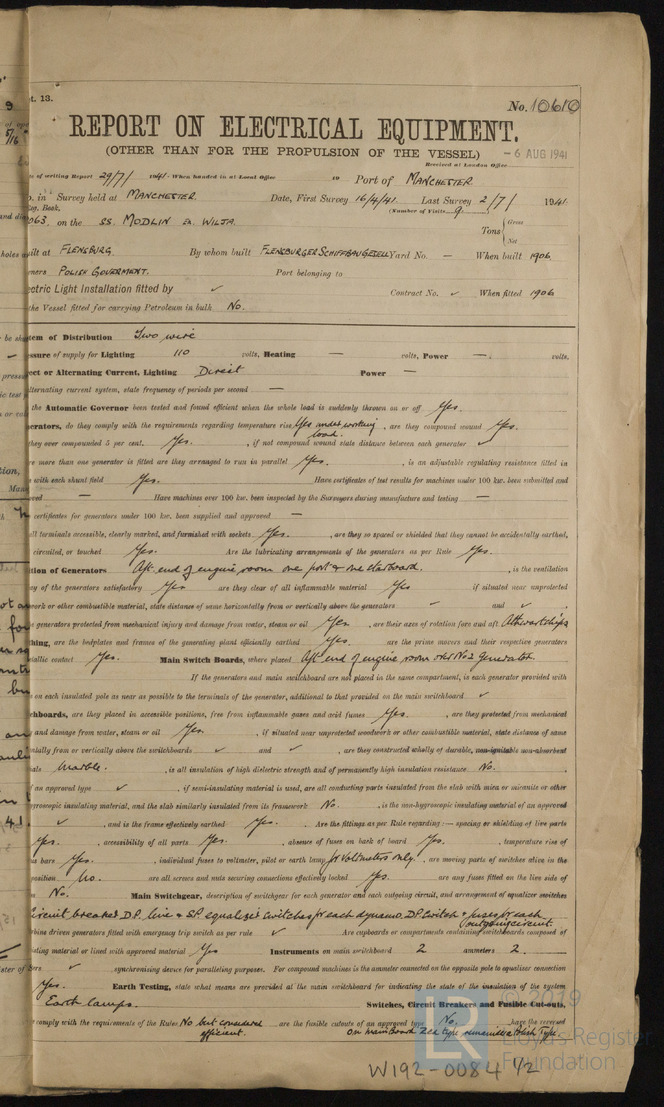 t. 13.
No. 10610
REPORT ON ELECTRICAL EQUIPMENT.
(OTHER THAN FOR THE PROPULSION OF THE VESSEL)
Received at London Office
-6 AUG 1941
te of writing Report 29/7/ 1941. When handed in at Local Office 19 Port of MANCHESTER
o. in Survey held at MANCHESTER. Date, First Survey 16/4/41. Last Survey 2/7/ 1941.
eg. Book. (Number of Visits 9 )
063, on the SS. MODLIN ex WILJA. Tons { Gross Net
uilt at FLENSBURG By whom built FLENSBURGER SCHIFFBAUGESELL Yard No. — When built 1906
ners POLISH GOVERMENT. Port belonging to
ectric Light Installation fitted by ✓ Contract No. ✓ When fitted 1906
the Vessel fitted for carrying Petroleum in bulk No.
stem of Distribution Two wire
essure of supply for Lighting 110 volts, Heating — volts, Power —. volts.
rect or Alternating Current, Lighting Direct Power —
alternating current system, state frequency of periods per second —
the Automatic Governor been tested and found efficient when the whole load is suddenly thrown on or off Yes.
erators, do they comply with the requirements regarding temperature rise Yes under working load. , are they compound wound Yes.
they over compounded 5 per cent. Yes. , if not compound wound state distance between each generator ✓
re more than one generator is fitted are they arranged to run in parallel Yes. , is an adjustable regulating resistance fitted in
s with each shunt field Yes. Have certificates of test results for machines under 100 kw. been submitted and
oved — Have machines over 100 kw. been inspected by the Surveyors during manufacture and testing —
certificates for generators under 100 kw. been supplied and approved —
all terminals accessible, clearly marked, and furnished with sockets Yes. , are they so spaced or shielded that they cannot be accidentally earthed,
circuited, or touched Yes. Are the lubricating arrangements of the generators as per Rule Yes.
tion of Generators Aft end of engine room one port & one starboard. , is the ventilation
ay of the generators satisfactory Yes are they clear of all inflammable material Yes if situated near unprotected
work or other combustible material, state distance of same horizontally from or vertically above the generators ✓ and ✓ ,
e generators protected from mechanical injury and damage from water, steam or oil Yes , are their axes of rotation fore and aft Athwartships
thing, are the bedplates and frames of the generating plant efficiently earthed Yes. are the prime movers and their respective generators
etallic contact Yes. Main Switch Boards, where placed Aft end of engine room over No 2 Generator.
If the generators and main switchboard are not placed in the same compartment, is each generator provided with
e on each insulated pole as near as possible to the terminals of the generator, additional to that provided on the main switchboard ✓
chboards, are they placed in accessible positions, free from inflammable gases and acid fumes Yes. , are they protected from mechanical
y and damage from water, steam or oil Yes. , if situated near unprotected woodwork or other combustible material, state distance of same
ontally from or vertically above the switchboards ✓ and ✓ , are they constructed wholly of durable, non-ignitable non-absorbent
ials Marble. , is all insulation of high dielectric strength and of permanently high insulation resistance No. ,
f an approved type ✓ , if semi-insulating material is used, are all conducting parts insulated from the slab with mica or micanite or other
ygroscopic insulating material, and the slab similarly insulated from its framework No. , is the non-hygroscopic insulating material of an approved
✓ , and is the frame effectively earthed Yes. Are the fittings as per Rule regarding:— spacing or shielding of live parts
Yes. , accessibility of all parts Yes. , absence of fuses on back of board Yes. , temperature rise of
us bars Yes. , individual fuses to voltmeter, pilot or earth lamp for Voltmeters only. , are moving parts of switches alive in the
position No. are all screws and nuts securing connections effectively locked Yes. are any fuses fitted on the live side of
es No. Main Switchgear, description of switchgear for each generator and each outgoing circuit, and arrangement of equalizer switches
Circuit breaker D.P. line & S.P. equalizer switches for each dynamo. D.P. Switch & fuses for each outgoing circuit.
rbine driven generators fitted with emergency trip switch as per rule ✓ Are cupboards or compartments containing switchboards composed of
sisting material or lined with approved material Yes Instruments on main switchboard 2 ammeters 2.
ers ✓ synchronising device for paralleling purposes. For compound machines is the ammeter connected on the opposite pole to equaliser connection
Yes. Earth Testing, state what means are provided at the main switchboard for indicating the state of the insulation of the system
Earth lamps. Switches, Circuit Breakers and Fusible Cut-outs,
comply with the requirements of the Rules No but considered efficient. are the fusible cutouts of an approved type No. , have the reversed
On main board
© 2019
LR Lloyd's Register Foundation
W192-0084 1/2